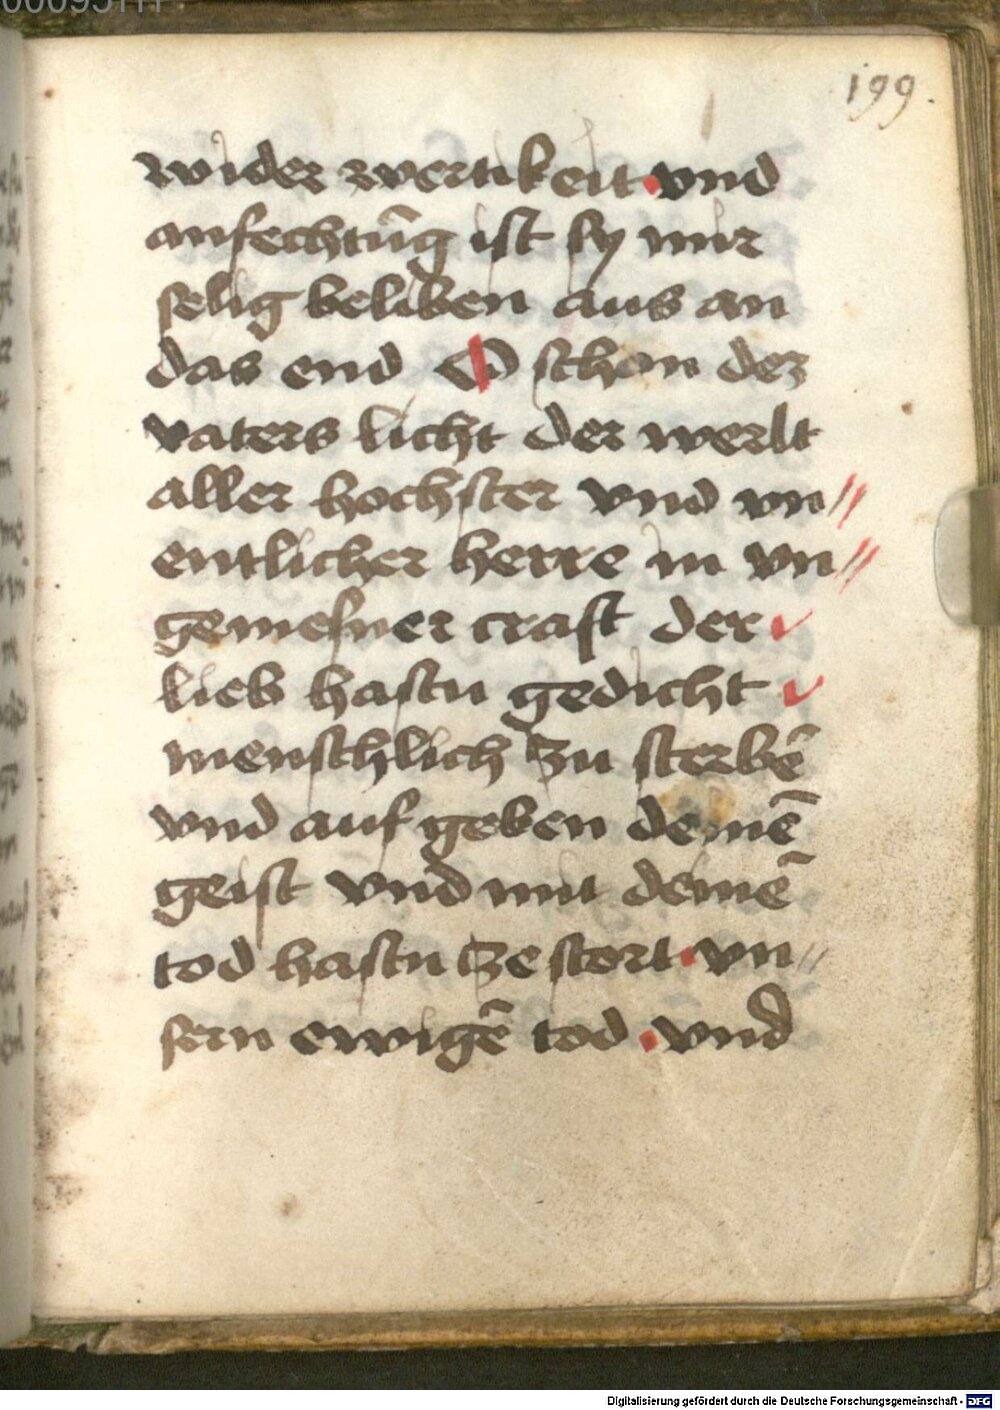 199.
wider wertikeit · vnd
anfechtūg ist sy mir
selig beliben aus an
das end O schon des
vaters licht der werlt
aller hochster vnd vn//
entlicher herre in vn//
gemesner craft der
lieb hastu gedicht
menschlich zu sterbē
vnd auf geben deinē
geist vnd mit deinē
tod hastu ze stort · vn//
sern ewigē tod · vnd
Digitalisierung gefördert durch die Deutsche Forschungsgemeinschaft - DFG